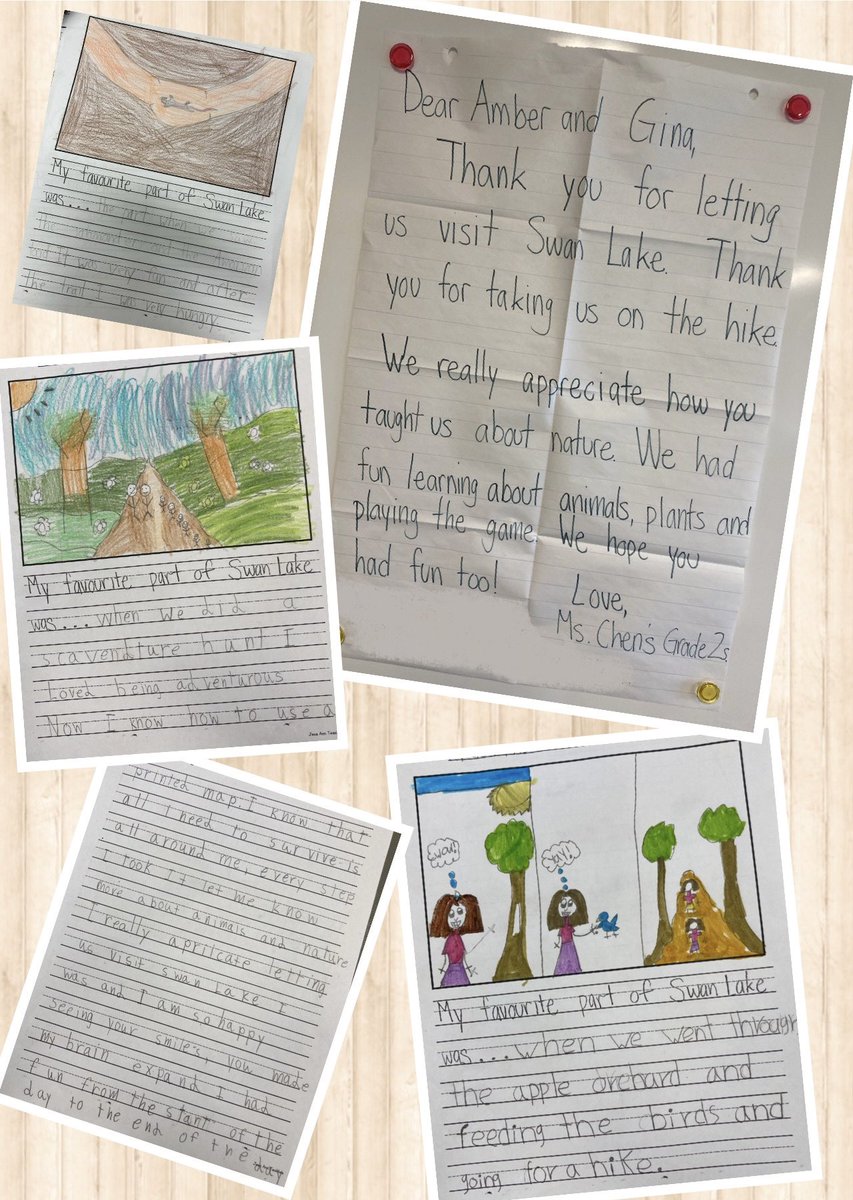 My favourite part of Swan Lake
was... the part when we saw
the salamander and the
and it was very fun and after
the trail I was very hungry
Dear Amber and Gina,
Thank you for letting
us visit Swan Lake. Thank
you for taking us on the hike.
We really appreciate how you
taught us about nature. We had
fun learning about animals, plants and
playing the game. We hope you
had fun too!
Love,
Ms. Chen's Grade 2s
My favourite part of Swan Lake
was... when we did a
scavendture hunt I
Loved being adventurous
Now I know how to use a
printed map. I know that
all I need to survive is
all around me, every step
I took it let me know
more about animals and nature
I really aprilcate letting
us visit swan Lake I
was and I am so happy
seeing your smiles, you made
my brain expand I had
fun from the start of the
day to the end of the day
wow!
yay!
My favourite part of Swan Lake
was... when we went through
the apple orchard and
feeding the birds and
going for a hike.